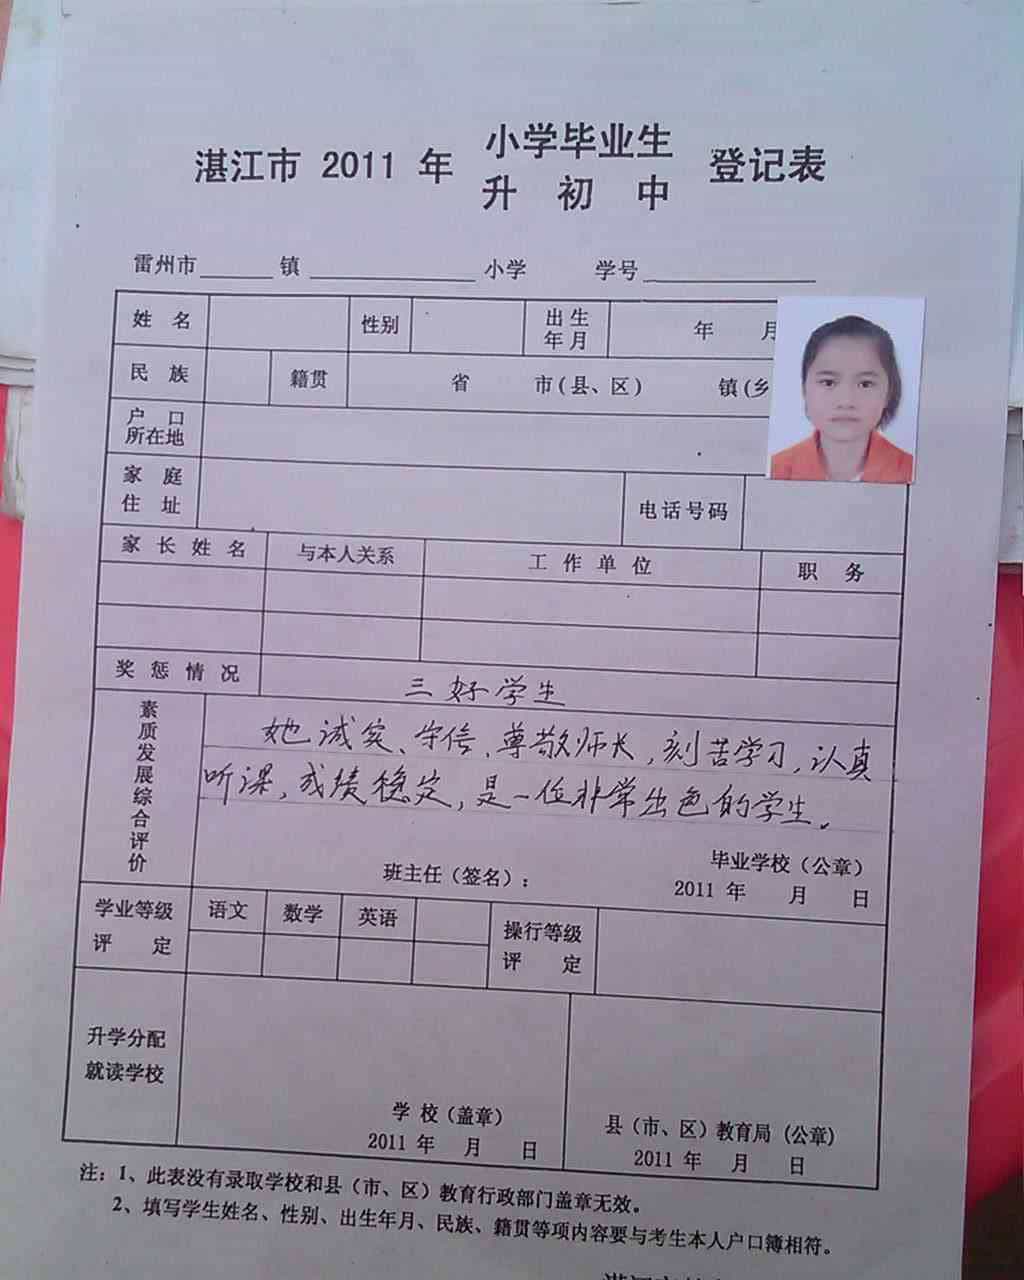 湛江市 2011 年 小学毕业生 登记表
升 初 中
雷州市______镇______________小学 学号______________
姓 名 性别 出生年月 年 月
民 族 籍贯 省 市(县、区) 镇(乡
户 口
所在地
家 庭
住 址 电话号码
家 长 姓 名 与本人关系 工 作 单 位 职 务
奖 惩 情 况 三好学生
素质发展综合评价
她诚实、守信、尊敬师长,刻苦学习,认真
听课,成绩稳定,是一位非常出色的学生。
毕业学校(公章)
班主任(签名): 2011 年 月 日
学业等级
评 定
语文 数学 英语
操行等级
评 定
升学分配
就读学校
学 校(盖章)
2011 年 月 日
县(市、区)教育局(公章)
2011 年 月 日
注:1、此表没有录取学校和县(市、区)教育行政部门盖章无效。
2、填写学生姓名、性别、出生年月、民族、籍贯等项内容要与考生本人户口簿相符。